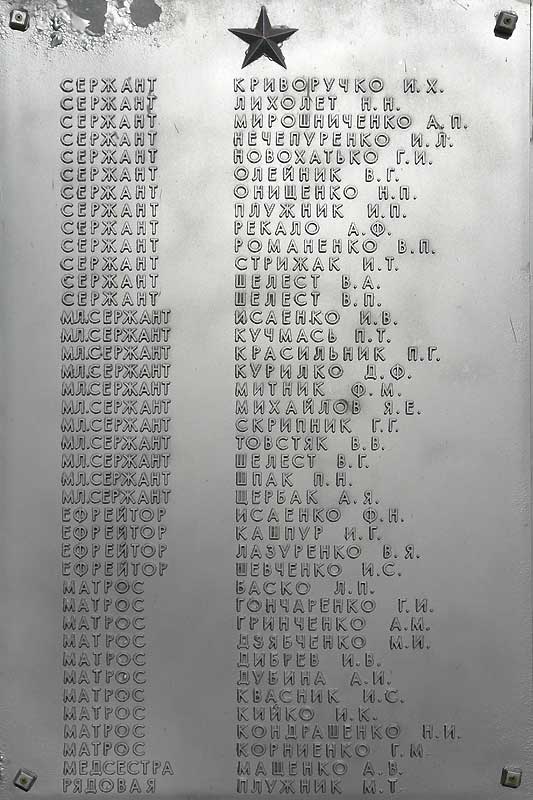 СЕРЖАНТ КРИВОРУЧКО И.Х.
СЕРЖАНТ ЛИХОЛЕТ Н.Н.
СЕРЖАНТ МИРОШНИЧЕНКО А.П.
СЕРЖАНТ НЕЧЕПУРЕНКО И.Л.
СЕРЖАНТ НОВОХАТЬКО Г.И.
СЕРЖАНТ ОЛЕЙНИК В.Г.
СЕРЖАНТ ОНИЩЕНКО Н.П.
СЕРЖАНТ ПЛУЖНИК И.П.
СЕРЖАНТ РЕКАЛО А.Ф.
СЕРЖАНТ РОМАНЕНКО В.П.
СЕРЖАНТ СТРИЖАК И.Т.
СЕРЖАНТ ШЕЛЕСТ В.А.
СЕРЖАНТ ШЕЛЕСТ В.П.
МЛ.СЕРЖАНТ ИСАЕНКО И.В.
МЛ.СЕРЖАНТ КУЧМАСЬ П.Т.
МЛ.СЕРЖАНТ КРАСИЛЬНИК П.Г.
МЛ.СЕРЖАНТ КУРИЛКО Д.Ф.
МЛ.СЕРЖАНТ МИТНИК Ф.М.
МЛ.СЕРЖАНТ МИХАЙЛОВ Я.Е.
МЛ.СЕРЖАНТ СКРИПНИК Г.Г.
МЛ.СЕРЖАНТ ТОВСТЯК В.В.
МЛ.СЕРЖАНТ ШЕЛЕСТ В.Г.
МЛ.СЕРЖАНТ ШПАК П.Н.
МЛ.СЕРЖАНТ ЩЕРБАК А.Я.
ЕФРЕЙТОР ИСАЕНКО Ф.Н.
ЕФРЕЙТОР КАШПУР И.Г.
ЕФРЕЙТОР ЛАЗУРЕНКО В.Я.
ЕФРЕЙТОР ШЕВЧЕНКО И.С.
МАТРОС БАСКО Л.П.
МАТРОС ГОНЧАРЕНКО Г.И.
МАТРОС ГРИНЧЕНКО А.М.
МАТРОС ДЗЯБЧЕНКО М.И.
МАТРОС ДИБРЕВ И.В.
МАТРОС ДУБИНА А.И.
МАТРОС КВАСНИК И.С.
МАТРОС КИЙКО И.К.
МАТРОС КОНДРАШЕНКО Н.И.
МАТРОС КОРНИЕНКО Г.М.
МЕДСЕСТРА МАЩЕНКО А.В.
РЯДОВАЯ ПЛУЖНИК М.Т.